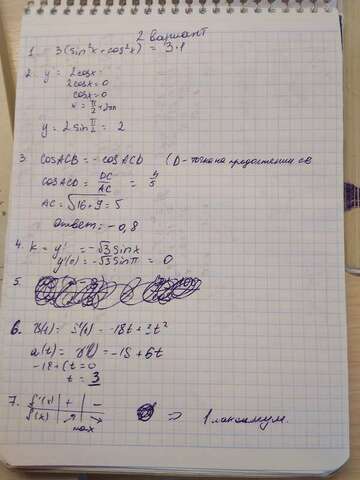 2 вариант
1. 3(sin²x + cos²x) = 3·1
2. y' = 2cosx =
2cosx = 0
cosx = 0
x = π/2 + 2πn
y = 2 sin π/2 = 2
3. cos ACB = - cos ACD (D - точка на продолжении CB
cos ACD = DC/AC = 4/5
AC = √16+9 = 5
Ответ: - 0,8
4. k = y' = -√3 sinx
y'(0) = -√3 sin π = 0
5.
6. v(t) = s'(t) = -18t + 3t²
a(t) = v'(t) = -18 + 6t
-18 + 6t = 0
t = 3
7. f'(x) | + | -
f(x) | ↗ | ↘
max
⇒ 1 максимум.